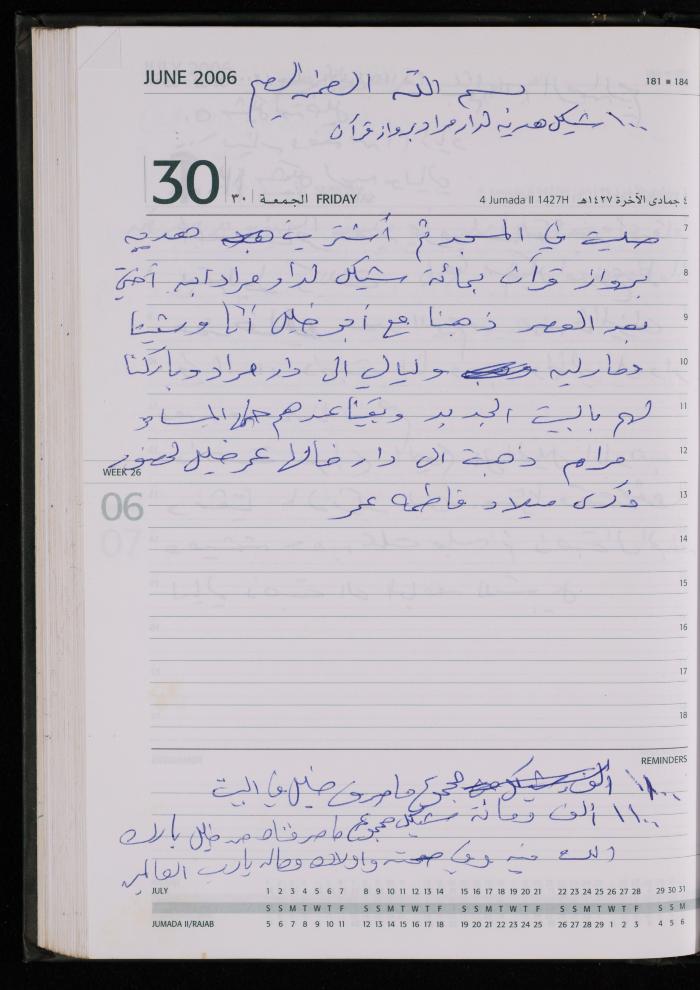 JUNE 2006
بسم الله الرحمن الرحيم
181 ▪ 184
١٠٠ شيكل هدية لدار مراد برواز قرآن
30 ٣٠ الجمعة FRIDAY
4 Jumada II 1427H ٤ جمادى الآخرة ١٤٢٧هـ
7
صليت في المسجد ثم أشتريت هدية
8
برواز قرآن بمائة شيكل لدار مراد ابه أختي
9
بعد العصر ذهبنا مع أبو خليل أنا وشيفا
10
ومارليه وليالي الى دار مراد وباركنا
11
لهم بالبيت الجديد وبقينا عندهم حتى المساء
12
مرام ذهبت الى دار خالها عمر خليل لحضور
WEEK 26
06
13
ذكرى ميلاد فاطمه عمر
07
14
15
16
17
18
REMINDERS
مجموع ما صرف خليل في البيت
١١٠٠ ألف ومائة شيكل مجموع ما صرفناه من خليل بارك
الله فيه وفي صحته واولاده وماله يا رب العالمين
JULY 1 2 3 4 5 6 7 8 9 10 11 12 13 14 15 16 17 18 19 20 21 22 23 24 25 26 27 28 29 30 31
S S M T W T F S S M T W T F S S M T W T F S S M T W T F S S M
JUMADA II/RAJAB 5 6 7 8 9 10 11 12 13 14 15 16 17 18 19 20 21 22 23 24 25 26 27 28 29 1 2 3 4 5 6